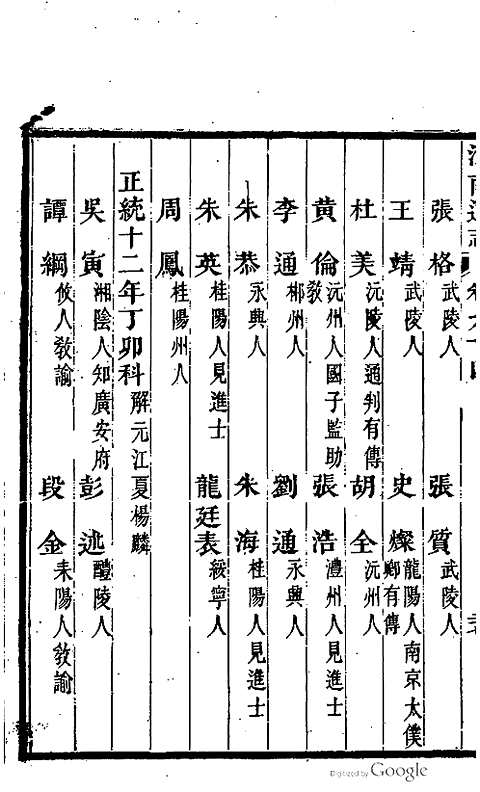 張格武陵人 張質武陵人
王靖武陵人 史燦龍陽人南京太僕卿有傳
杜美沅陵人通判有傳 胡全沅州人
黃倫沅州人國子監助敎 張浩澧州人見進士
李通郴州人 劉通永興人
朱恭永興人 朱海桂陽人見進士
朱英桂陽人見進士 龍廷表綏寧人
周鳳桂陽州人
正統十二年丁卯科解元江夏楊麟
吳寅湘陰人知廣安府 彭述醴陵人
譚綱攸人敎諭 段金耒陽人敎諭
Digitized by Google